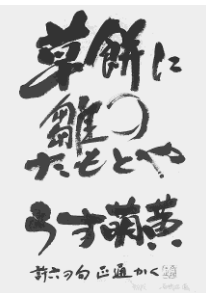 草餅に
雛の
たもとや
うす萌黄
許六の句 正通かく